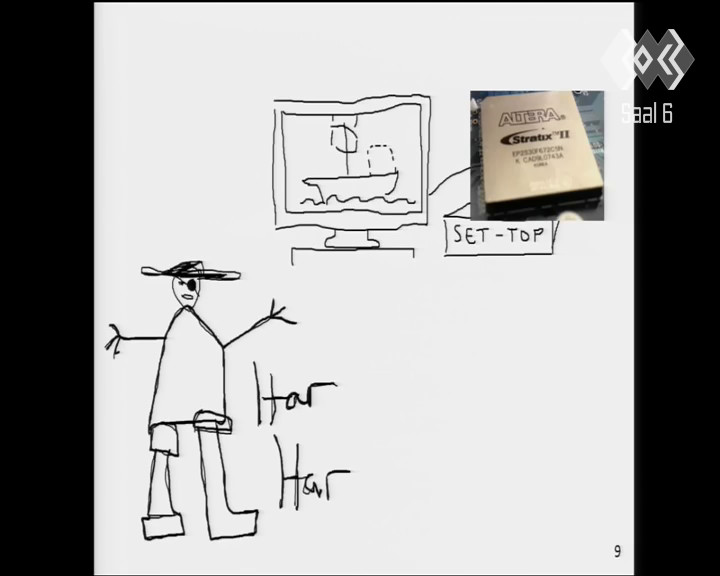 Saal 6
ALTERA®
Stratix™ II
EP2S30F672C5N
K CAD9L0743A
KOREA
SET-TOP
Har
Har
9